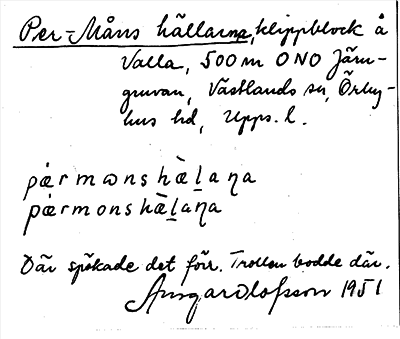 Per-Måns hällarna, klippblock å
Valla, 500 m ONO Järn-
gruvan, Västlands sn, Örby-
hus hd, Upps. l.
pær mɷns hæ̀l̲aɳa
pærmonshæ̀l̲aɳa
Där spökade det förr. Trollen bodde där.
Ansgar Olofsson 1951